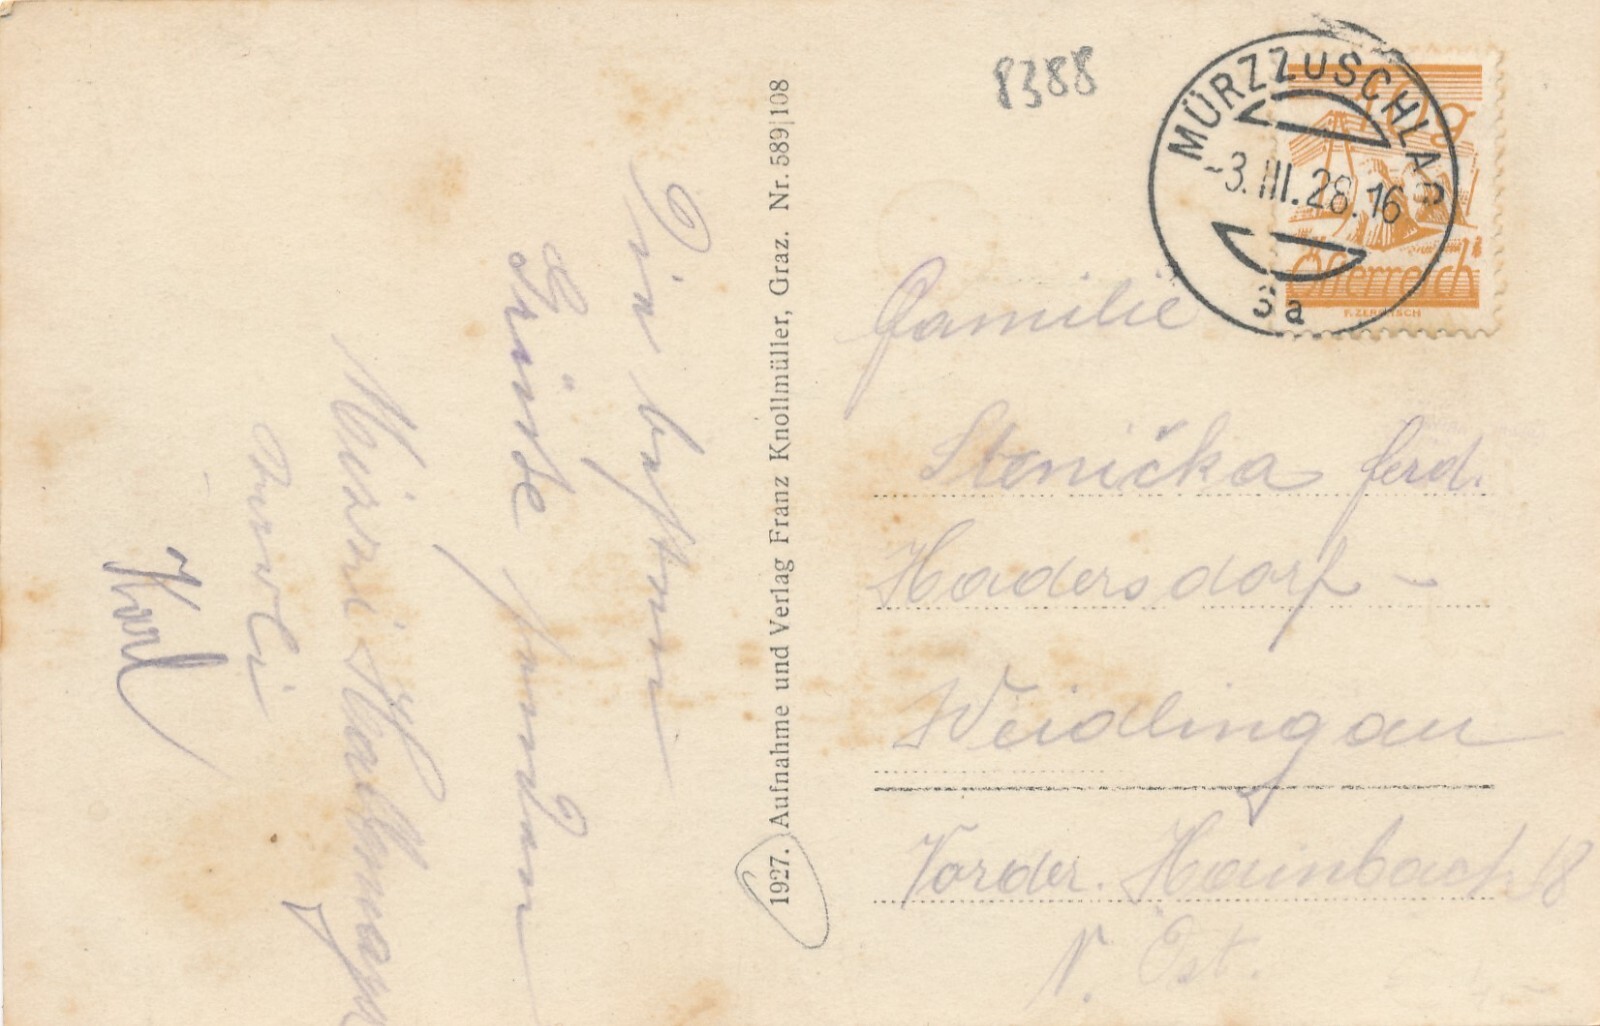 8388
MÜRZZUSCHLAG
-3.III.28.16
3a
10g
Österreich
1927. Aufnahme und Verlag Franz Knollmüller, Graz. Nr. 589|108
Familie
Stenička Ferd.
Hadersdorf -
Weidlingau
Vorder. Hainbach 18
N. Öst.
Die besten
Grüße senden
Karl